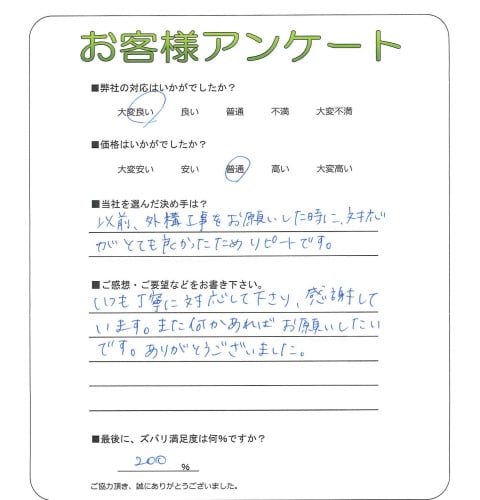 お客様アンケート
■弊社の対応はいかがでしたか？
大変良い 良い 普通 不満 大変不満
■価格はいかがでしたか？
大変安い 安い 普通 高い 大変高い
■当社を選んだ決め手は？
以前、外構工事をお願いした時に、対応
がとても良かったため リピートです。
■ご感想・ご要望などをお書き下さい。
いつも丁寧に対応して下さり、感謝して
います。また何かあれば お願いしたい
です。ありがとうございました。
■最後に、ズバリ満足度は何%ですか？
200 %
ご協力頂き、誠にありがとうございました。